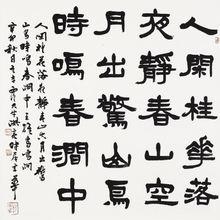 人閒桂花落
夜靜春山空
月出驚山鳥
時鳴春澗中
人閒桂花落夜靜春山空月出驚
山鳥時鳴春澗中王維鳥鳴澗